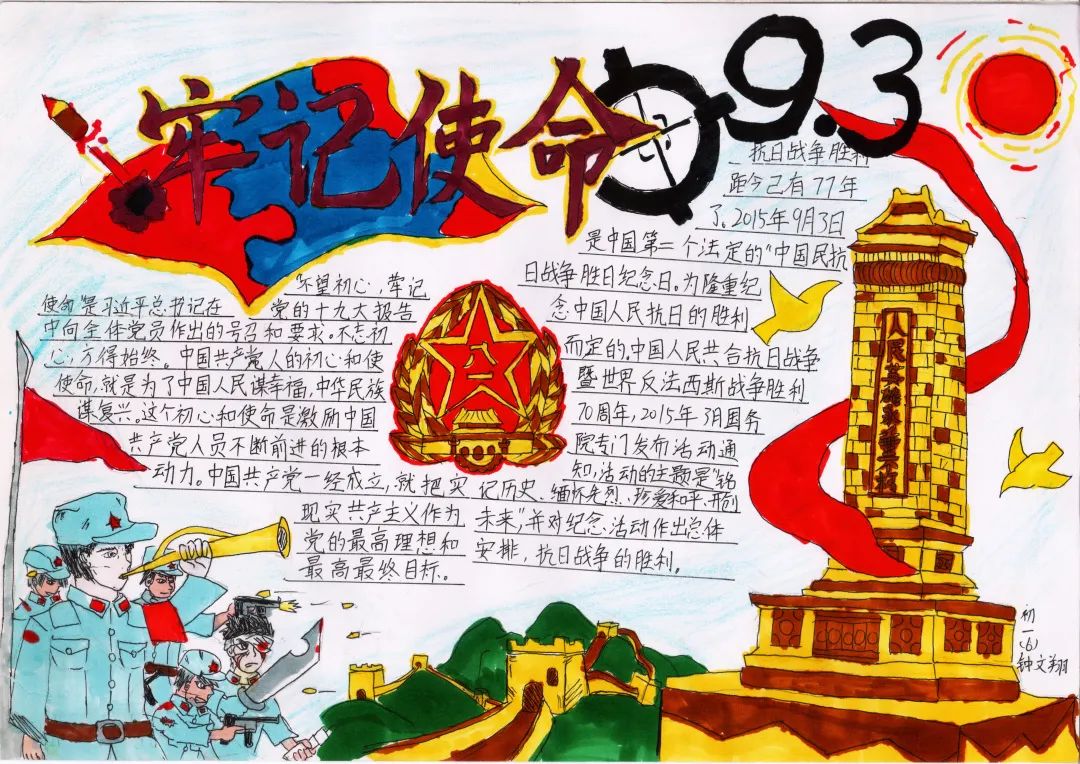 牢记使命
9.3
"不望初心,牢记
使命"是习近平总书记在党的十九大报告
中向全体党员作出的号召和要求。不忘初
心,方得始终。中国共产党人的初心和使
使命,就是为了中国人民谋幸福,中华民族
谋复兴。这个初心和使命是激励中国
共产党人员不断前进的根本
动力。中国共产党一经成立,就把实
现实共产主义作为
党的最高理想和
最高最终目标。
八一
抗日战争胜利
距今已有77年
了、2015年9月3日
是中国第二个法定的"中国民抗
日战争胜日纪念日。为隆重纪
念中国人民抗日的胜利
而定的,中国人民共合抗日战争
暨世界反法西斯战争胜利
70周年,2015年3月国务
院专门发布活动通
知,活动的主题是"铭
记历史、缅怀先烈、珍爱和平、开创
未来"并对纪念活动作出总体
安排,抗日战争的胜利。
人民英雄永垂不朽
初一(6)
钟文翔